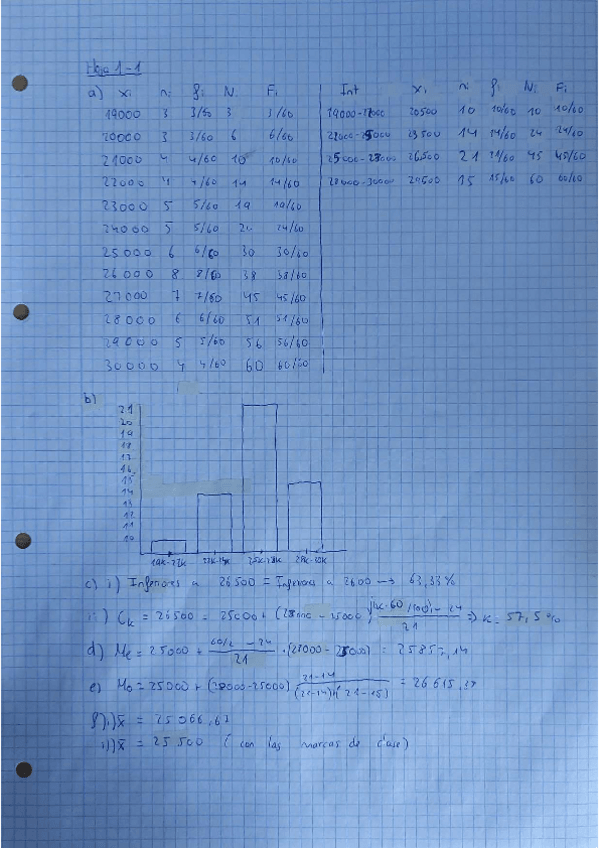 Hoja 1-1
a) xi ni fi Ni Fi Int xi ni fi Ni Fi
19000 3 3/60 3 3/60 19000-22000 20500 10 10/60 10 10/60
20000 3 3/60 6 6/60 22000-25000 23500 14 14/60 24 24/60
21000 4 4/60 10 10/60 25000-28000 26500 21 21/60 45 45/60
22000 4 4/60 14 14/60 28000-30000 29500 15 15/60 60 60/60
23000 5 5/60 19 19/60
24000 5 5/60 24 24/60
25000 6 6/60 30 30/60
26000 8 8/60 38 38/60
27000 7 7/60 45 45/60
28000 6 6/60 51 51/60
29000 5 5/60 56 56/60
30000 4 4/60 60 60/60
b)
21
20
19
18
17
16
15
14
13
12
11
10
19k-22k 22k-25k 25k-28k 28k-30k
c) i) Inferiores a 26500 = Inferiores a 2600 → 63,33%
ii) Ck = 26500 = 25000 + (28000 - 25000) (k·60/100) - 24 / 21 => k = 57,5%
d) Me = 25000 + 60/2 - 24 / 21 · (28000 - 25000) = 25857,14
e) Mo = 25000 + (28000-25000) 21-14 / (21-14)+(21-15) = 26615,
f) i) x̄ = 25066,67
ii) x̄ = 25500 (con las marcas de clase)